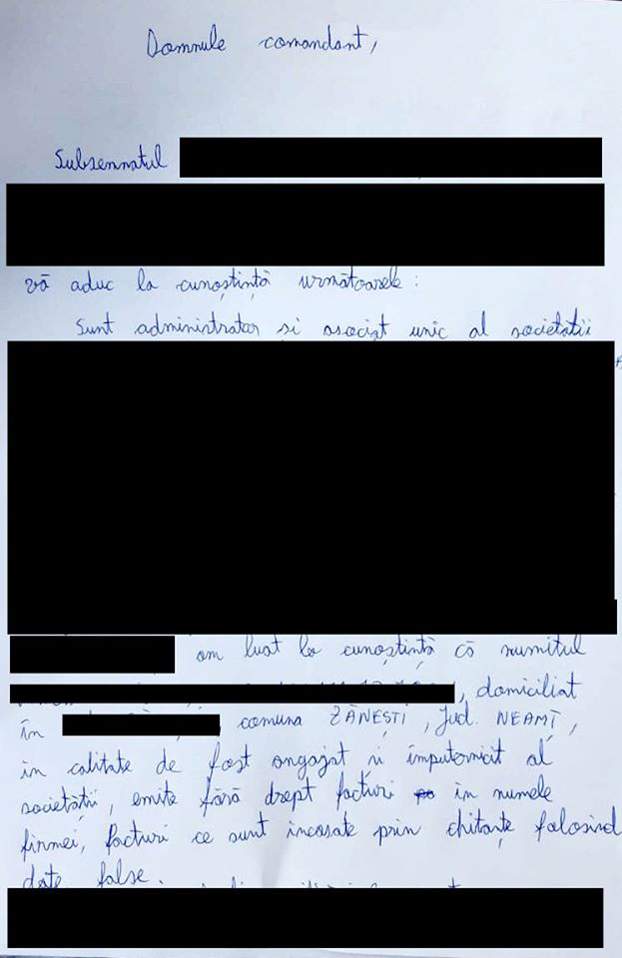 Domnule comandant,
Subsemnatul
vă aduc la cunoștință următoarele :
Sunt administrator si asociat unic al societătii
am luat la cunoștință că numitul
, domiciliat
în comuna ZĂNEȘTI , Jud. NEAMȚ ,
în calitate de fost angajat și împuternicit al
societății , emite fără drept facturi în numele
firmei, facturi ce sunt incasate prin chitanțe folosind
date false .